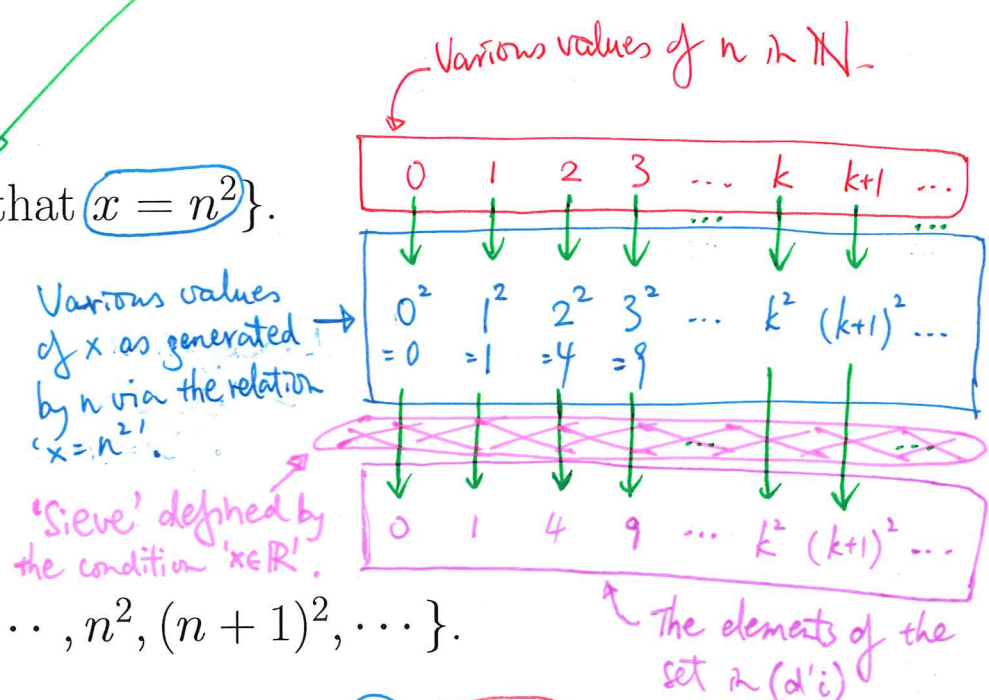 Various values of n in ℕ.
0 1 2 3 ... k k+1 ...
... ...
that x = n²}.
Various values
of x as generated
by n via the relation
'x = n²'.
0² 1² 2² 3² ... k² (k+1)² ...
=0 =1 =4 =9
... ...
'Sieve' defined by
the condition 'x∈ℝ'.
0 1 4 9 ... k² (k+1)² ...
··· , n², (n + 1)², ··· }.
The elements of the
set in (d'i)